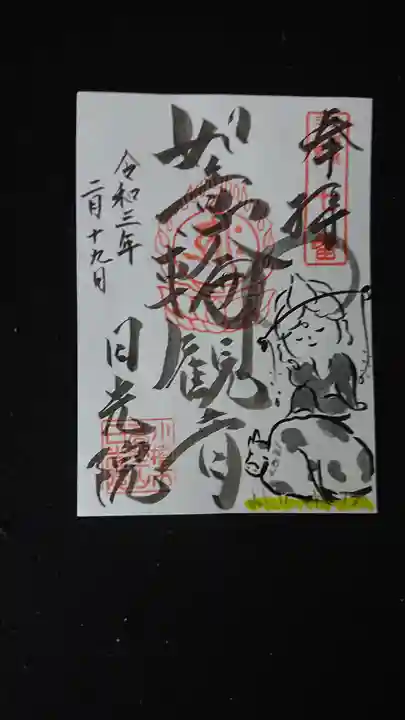 奉拝
如意輪観音
令和三年
二月十九日
日光院